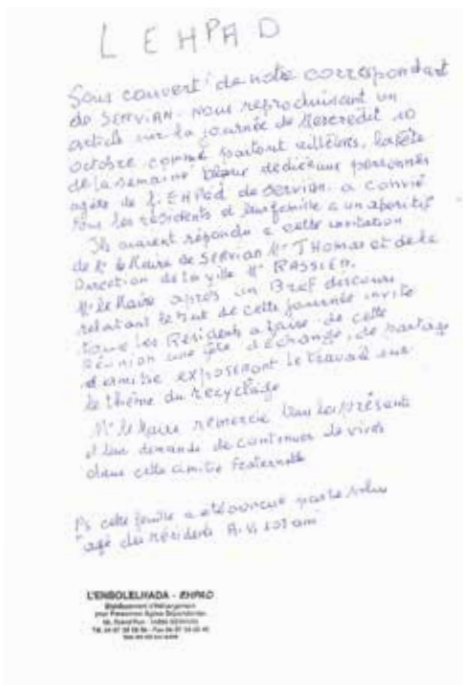 L EHPAD
Sous couvert de notre correspondant
de SERVIAN. Nous reproduisant un
article sur la journée de Mercredit 10
octobre comme partout ailleurs, la fête
de la semaine bleue dediée aux personnes
agées de l'EHPad de Servian. a convié
tous les résidents et leur famille a un aperitif
Ils avaient répondu a cette invitation
de Mr le Maire de SERVIAN Mr THOMAS et de la
Direction de la ville Mr
Mr le Maire après un Bref descours
relatant le but de cette journée invite
tous les Résidents a faire de cette
Réunion une fête d'échange, de partage
d'amitié exposeront le travail sur
le thème du recyclage
Mr le Maire remercie tous les présents
et leur demande de continuer de vivre
dans cette amitié fraternelle
Ps cette feuille a été par le plus
agé des résidents
L'ENSOLELHADA - EHPAD
Etablissement d'Hébergement
pour Personnes Agées Dépendantes